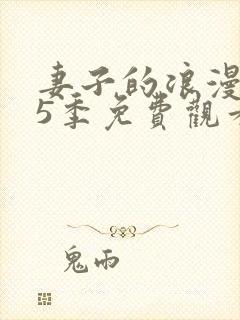 妻子的浪漫
5季免費觀
鬼雨